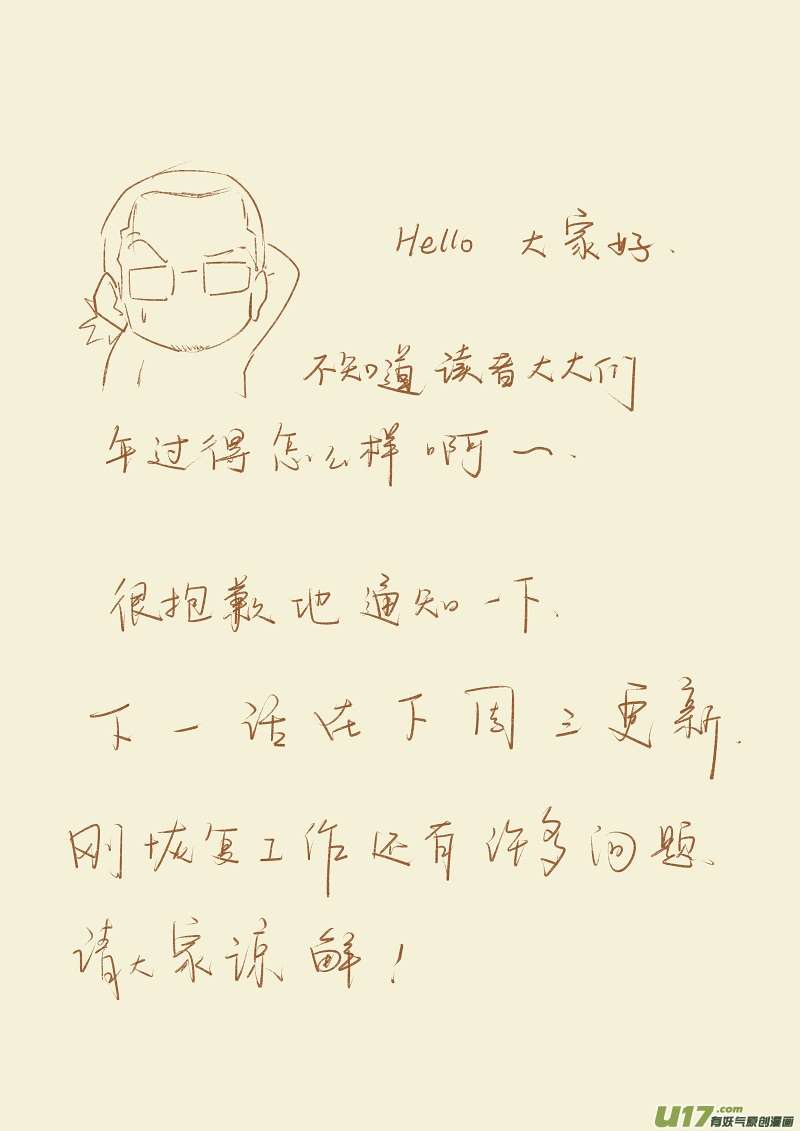 Hello 大家好.
不知道读者大大们
年过得怎么样啊~.
很抱歉地通知一下.
下一话在下周三更新.
刚恢复工作还有许多问题、
请大家谅解!
U17.com
有妖气原创漫画